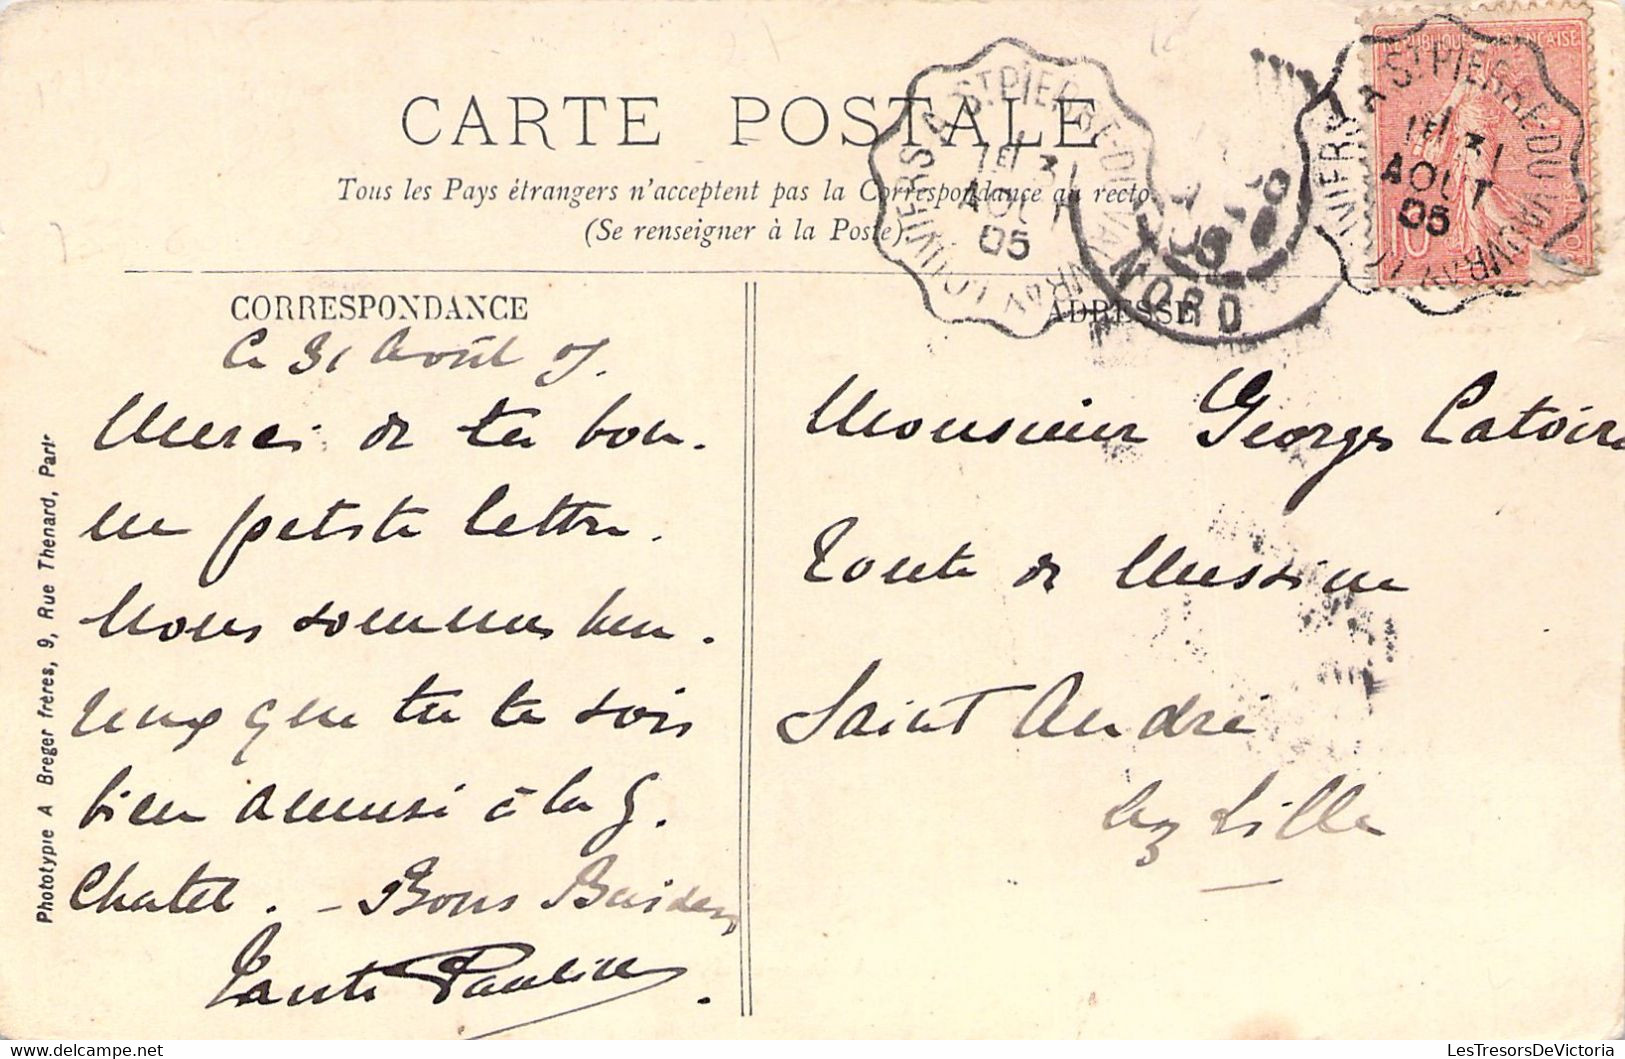 CARTE POSTALE
Tous les Pays étrangers n'acceptent pas la Correspondance au recto
(Se renseigner à la Poste)
RÉPUBLIQUE FRANÇAISE
LOUVIERS A ST PIERRE-DU-VAUVRAY
1E 31
AOUT
05
LOUVIERS A ST PIERRE-DU-VAUVRAY
1E 31
AOUT
05
NORD
CORRESPONDANCE
Ce 31 Août 5.
Merci de ta bon-
ne petite lettre.
Nous sommes heu-
reux que tu te sois
bien amusé à la G.
Chatel. - Bons Baisers
Tante Pauline
ADRESSE
Monsieur Georges Catoire
Route de Messine
Saint André
lez Lille
Phototypie A Breger frères, 9, Rue Thenard, Paris
LesTresorsDeVictoria